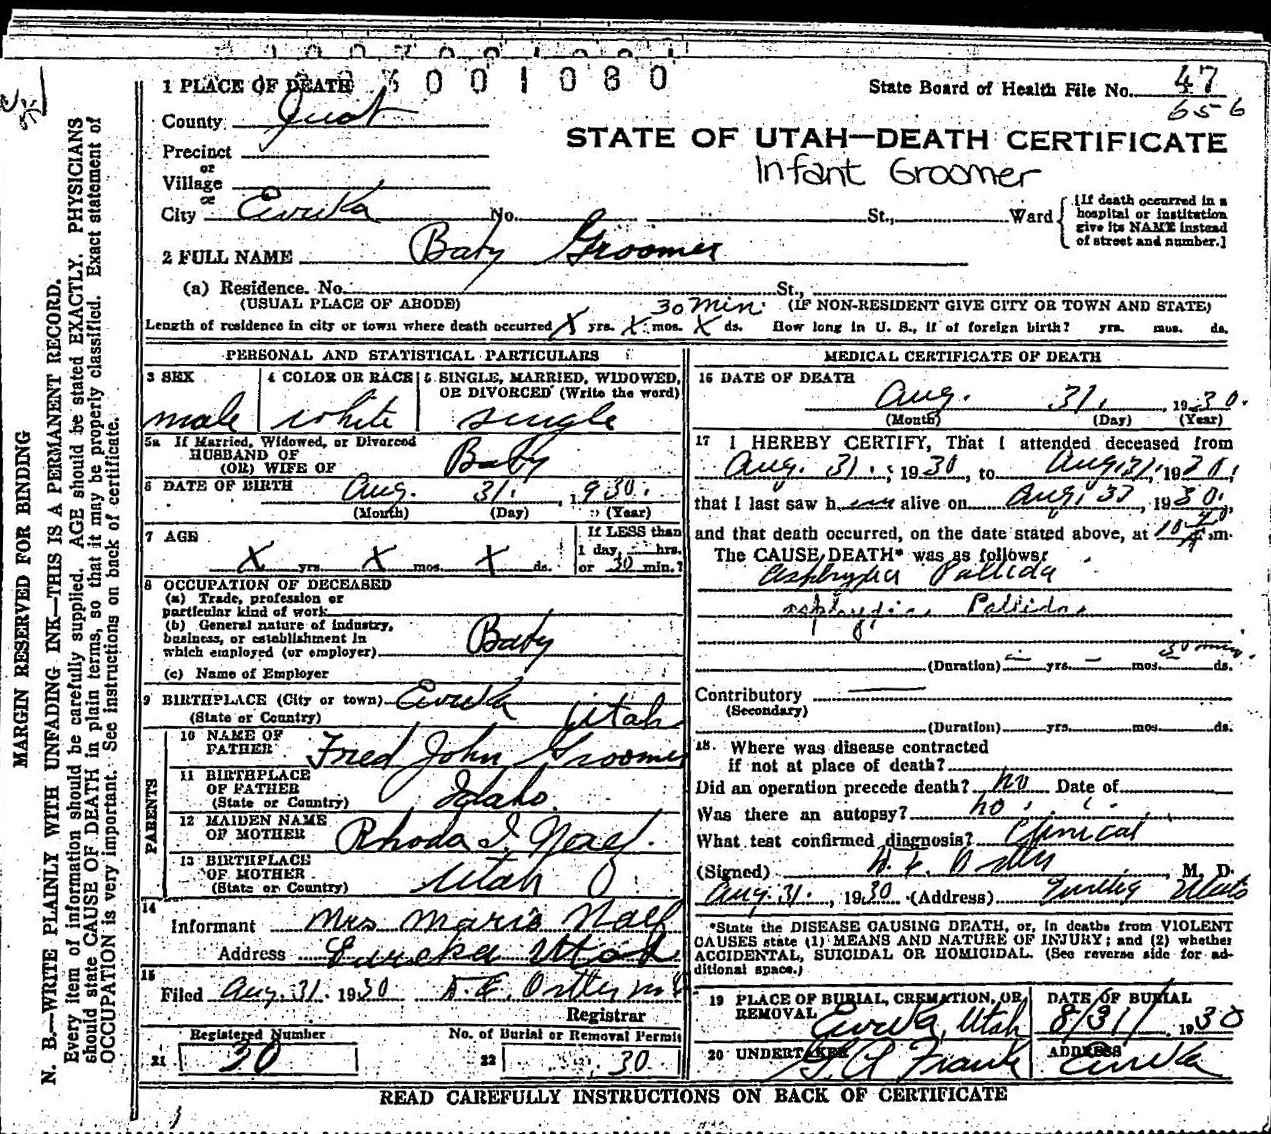 1 PLACE OF DEATH
3001080
State Board of Health File No. 47
656
County Juab
STATE OF UTAH—DEATH CERTIFICATE
Precinct
or
Village
Infant Groomer
or
City Eureka No. St., Ward
[If death occurred in a hospital or institution give its NAME instead of street and number.]
2 FULL NAME Baby Groomer
(a) Residence. No. St.,
(USUAL PLACE OF ABODE) 30 Min. (IF NON-RESIDENT GIVE CITY OR TOWN AND STATE)
Length of residence in city or town where death occurred X yrs. X mos. X ds. How long in U. S., if of foreign birth? yrs. mos. ds.
PERSONAL AND STATISTICAL PARTICULARS
3 SEX 4 COLOR OR RACE 5 SINGLE, MARRIED, WIDOWED,
OR DIVORCED (Write the word)
male white single
5a If Married, Widowed, or Divorced
HUSBAND OF
(OR) WIFE OF Baby
6 DATE OF BIRTH Aug. 31. 1930.
(Month) (Day) (Year)
7 AGE If LESS than
1 day, hrs.
X yrs. X mos. X ds. or 30 min.?
8 OCCUPATION OF DECEASED
(a) Trade, profession or
particular kind of work
(b) General nature of industry,
business, or establishment in
which employed (or employer) Baby
(c) Name of Employer
9 BIRTHPLACE (City or town) Eureka
(State or Country) Utah
PARENTS
10 NAME OF
FATHER Fred John Groomer
11 BIRTHPLACE
OF FATHER
(State or Country) Idaho.
12 MAIDEN NAME
OF MOTHER Rhoda I. Naef.
13 BIRTHPLACE
OF MOTHER
(State or Country) Utah
14
Informant Mrs Marie Naef
Address Eureka Utah
15
Filed Aug. 31. 1930
Registrar
Registered Number No. of Burial or Removal Permit
21 30 22 30.
MEDICAL CERTIFICATE OF DEATH
16 DATE OF DEATH
Aug. 31. 1930.
(Month) (Day) (Year)
17 I HEREBY CERTIFY, That I attended deceased from
Aug. 31., 1930, to Aug. 31, 1930,
that I last saw h alive on Aug. 1930,
and that death occurred, on the date stated above, at 10 m.
The CAUSE DEATH* was as follows:
Asphyxia Pallida
asphyxia Pallida
30 min.
(Duration) yrs. mos. ds.
Contributory
(Secondary)
(Duration) yrs. mos. ds.
18. Where was disease contracted
if not at place of death?
Did an operation precede death? no Date of
Was there an autopsy? no.
What test confirmed diagnosis? Clinical
(Signed) , M. D.
Aug. 31., 1930 (Address) Utah
*State the DISEASE CAUSING DEATH, or, in deaths from VIOLENT
CAUSES state (1) MEANS AND NATURE OF INJURY; and (2) whether
ACCIDENTAL, SUICIDAL OR HOMICIDAL. (See reverse side for ad-
ditional space.)
19 PLACE OF BURIAL, CREMATION, OR DATE OF BURIAL
REMOVAL Eureka, Utah 8/31/, 1930
20 UNDERTAKER ADDRESS
Eureka
READ CAREFULLY INSTRUCTIONS ON BACK OF CERTIFICATE
MARGIN RESERVED FOR BINDING
N. B.—WRITE PLAINLY WITH UNFADING INK—THIS IS A PERMANENT RECORD.
Every item of information should be carefully supplied. AGE should be stated EXACTLY. PHYSICIANS
should state CAUSE OF DEATH in plain terms, so that it may be properly classified. Exact statement of
OCCUPATION is very important. See instructions on back of certificate.